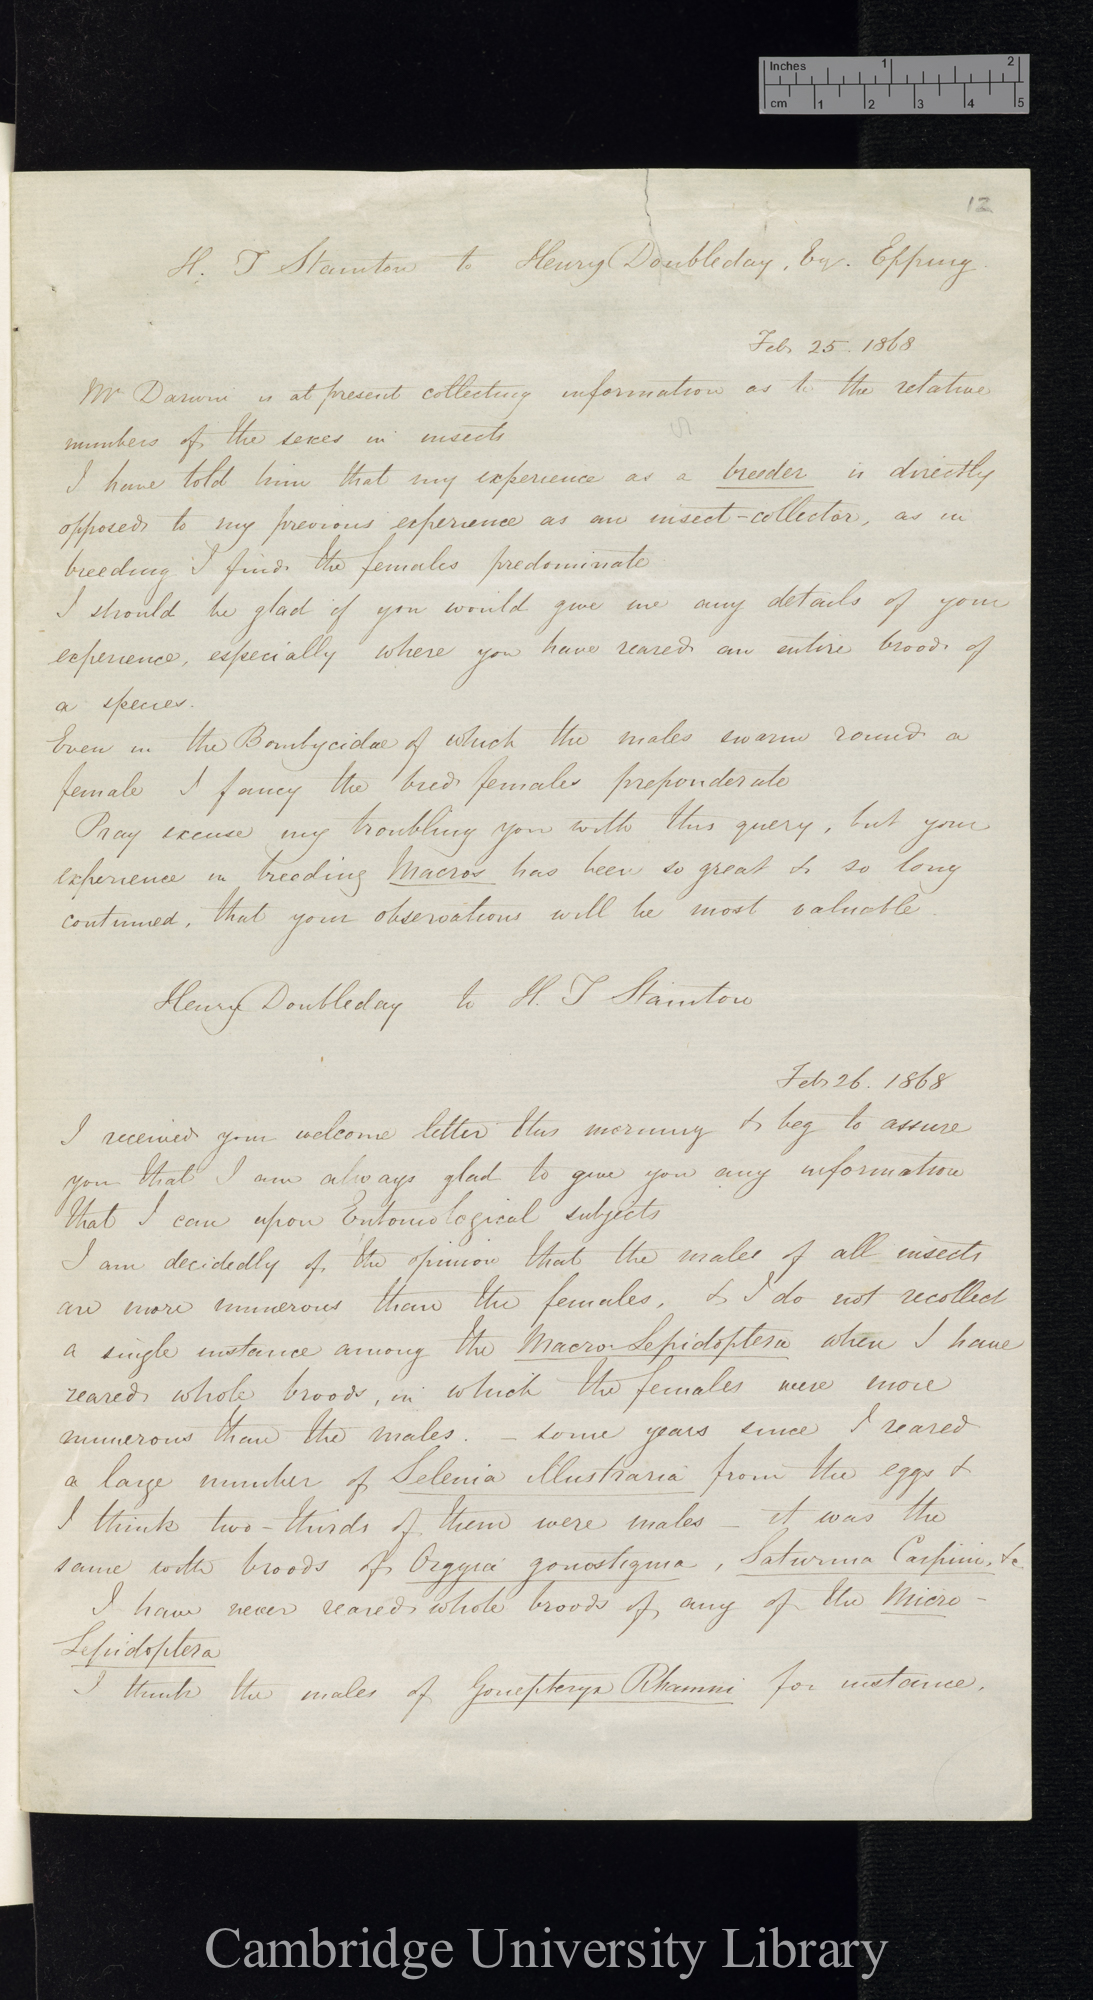 Inches 1 2
cm 1 2 3 4 5
12
H. T Stainton to Henry Doubleday, Esq. Epping.
Feb 25. 1868
Mr Darwin is at present collecting information as to the relative
numbers of the sexes in insects
I have told him that my experience as a breeder is directly
opposed to my previous experience as an insect-collector, as in
breeding I find the females predominate
I should be glad if you would give me any details of your
experience, especially where you have reared an entire brood of
a species.
Even in the Bombycidae of which the males swarm round a
female I fancy the bred females preponderate
Pray excuse my troubling you with this query, but your
experience in breeding Macros has been so great & so long
continued, that your observations will be most valuable.
Henry Doubleday to H. T Stainton
Feb 26. 1868
I received your welcome letter this morning & beg to assure
you that I am always glad to give you any information
that I can upon Entomological subjects
I am decidedly of the opinion that the males of all insects
are more numerous than the females, & I do not recollect
a single instance among the Macro-Lepidoptera when I have
reared whole broods, in which the females were more
numerous than the males. - some years since I reared
a large number of Selenia illustraria from the eggs &
I think two-thirds of them were males - it was the
same with broods of Orgyia gonostigma, Saturnia Carpini, &c
I have never reared whole broods of any of the Micro-
Lepidoptera
I think the males of Gonepteryx Rhamni for instance,
Cambridge University Library